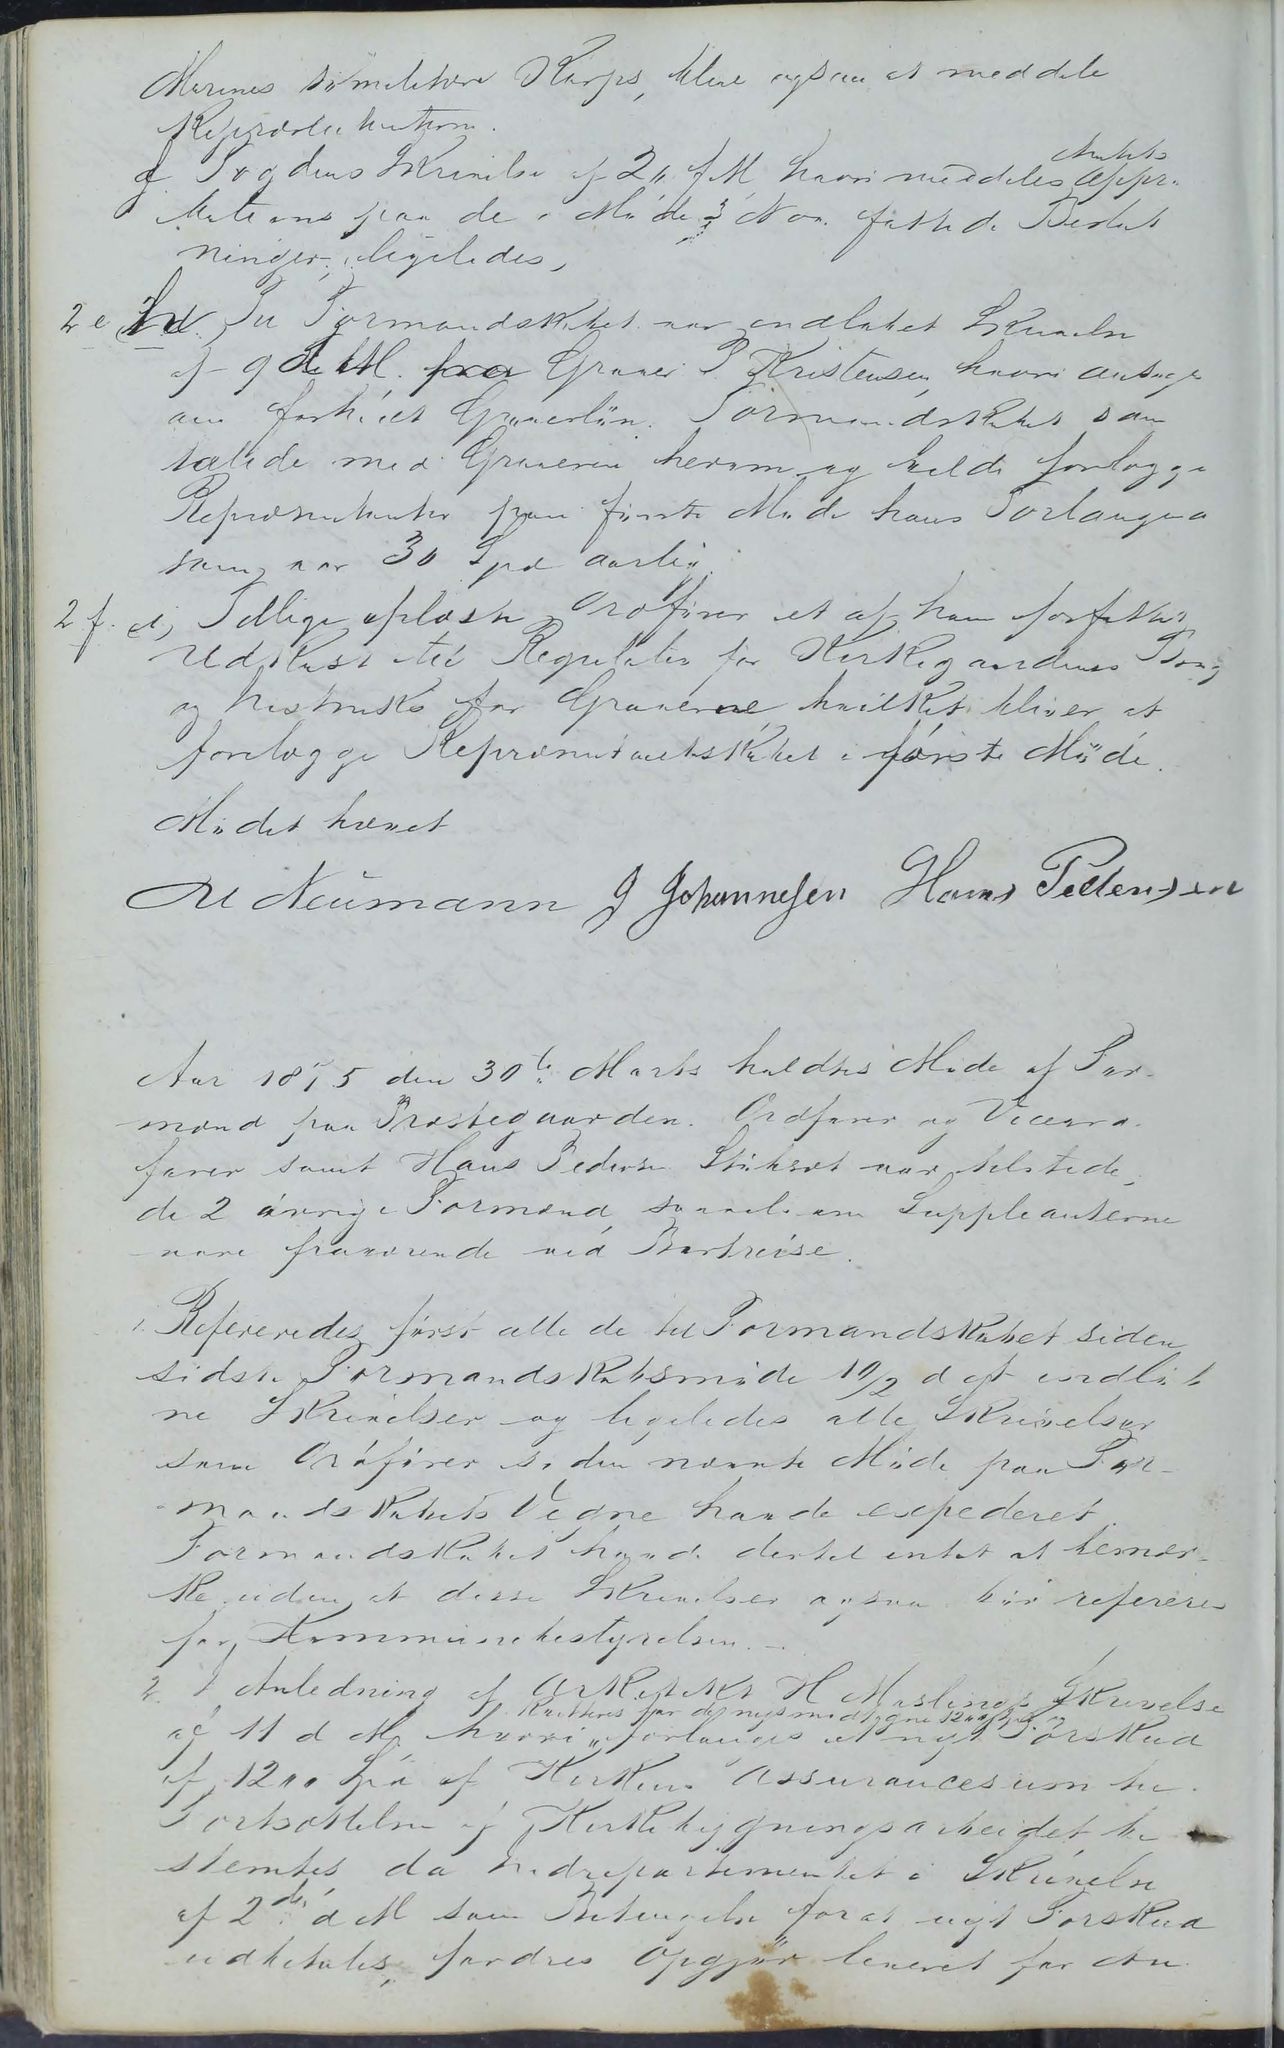 Marines sömilitære Korps, blive ogsaa at meddele
Repræsentanterne.
d Fogdens Skrivelse af 2 f M, hvori meddeles Amtets Appro-
bations paa de i Möde 3 Nov. fattede Beslut
ninger, ligeledes,
2 e Til Formandskabet var indlöbet Skrivelse
af 9 d M. fra Graver P Kristensen, hvori ansöges
om forhöiet Graverlön. Formandskabet sam
talede med Graveren herom og vilde forelægge
Repræsentanter paa förste Möde hans Forlangen
som var 30 Spd aarlig.
2 f. Tillige oplæste Ordförer et af ham forfattet
Udkast til Regulativ for Kirkegaardens Brug
og Instruks for Graverne, hvilket bliver at
forelægge Repræsentantskabet i förste Möde.
Mödet hævet
M Neumann J Johannesen Hans Pedersen
Aar 1875 den 30te Marts holdtes Möde af For-
mænd paa Præstegaarden. Ordförer og Viceord-
förer samt Hans Pedersen var tilstede,
de 2 övrige Formænd, saavelsom Suppleanterne
vare fraværende ved Bortreise.
1. Refereredes först alle de til Formandskabet siden
sidste Formandskabsmöde 10/2 d A indlöb
ne Skrivelser og ligeledes alle Skrivelser
som Ordförer siden nævnte Möde paa For-
mandskabets Vegne havde expederet.
Formandskabet havde dertil intet at bemær-
ke uden at disse Skrivelser ogsaa bör refereres
for Kommunebestyrelsen. -
2. I Anledning af Arkitekt H Skrivelse
af 11 d M hvori forlanges et nyt Forskud
af 1200 Spd af Kirkens Assurancesum til
Fortsættelse af Kirkebygningsarbeidet be
stemtes da Kirkedepartementet i Skrivelse
af 2den d M som Betingelse for at nyt Forskud
udbetales, fordrer Opgjör leveret for den